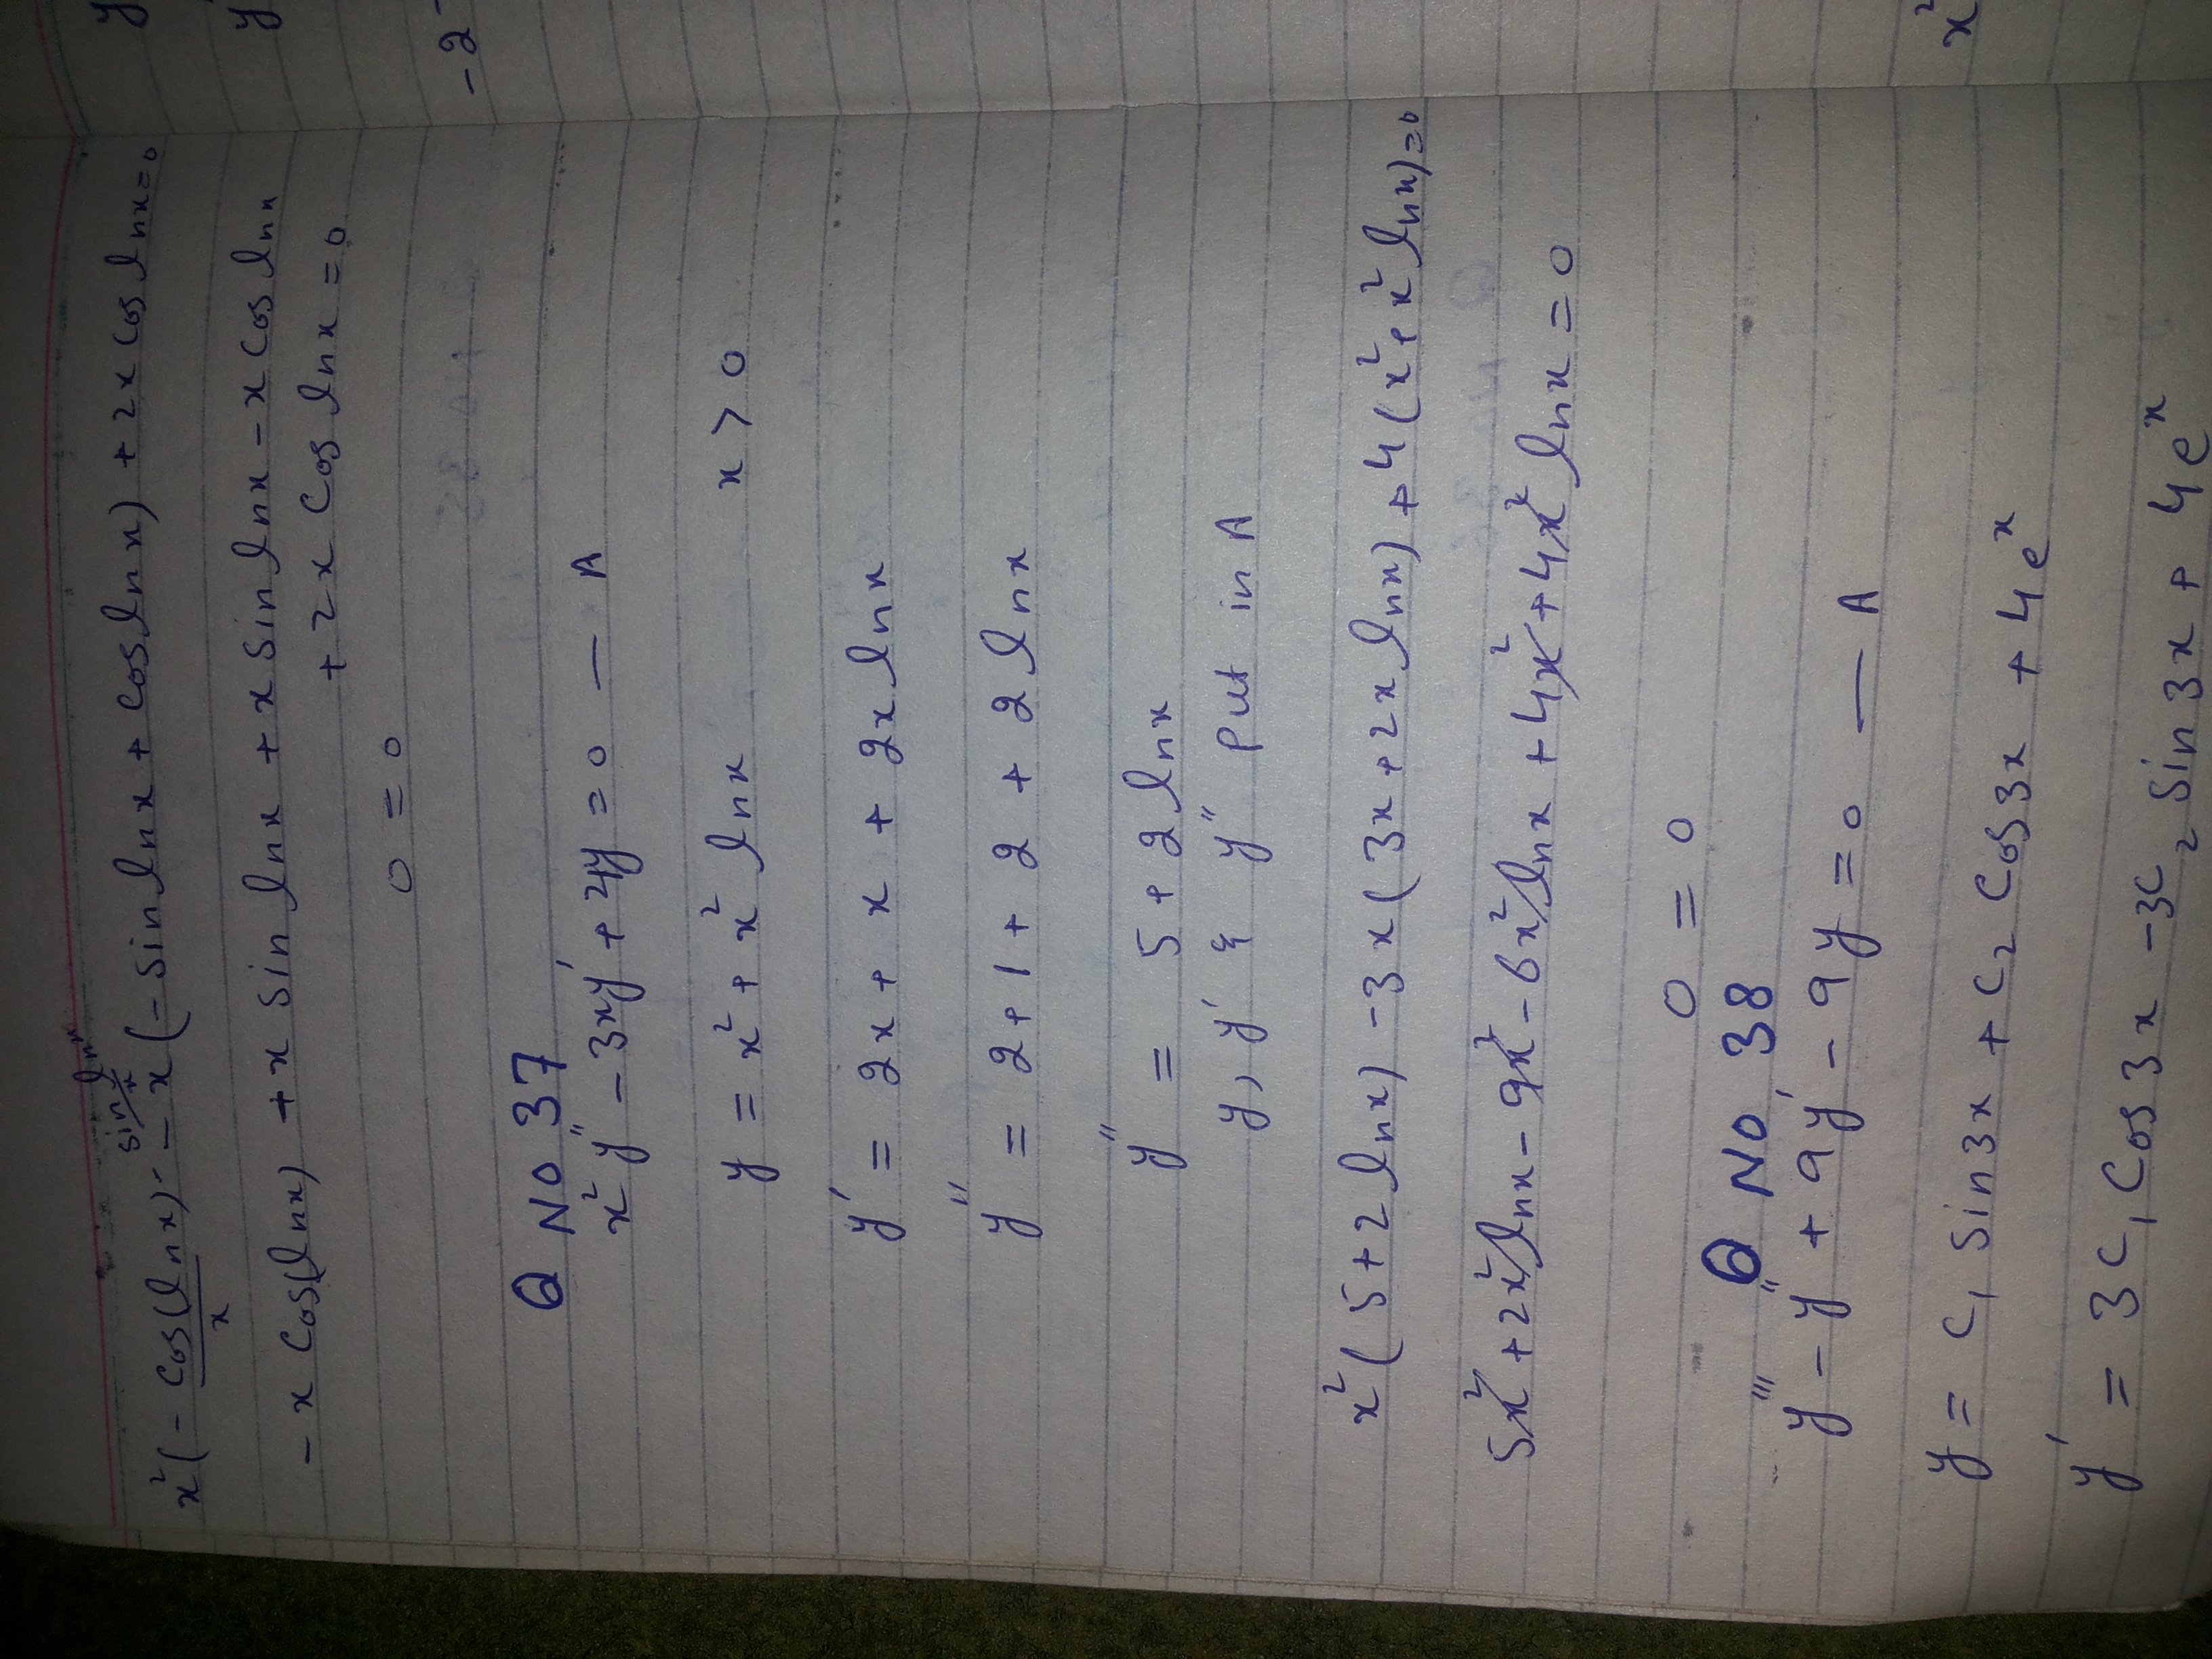 x²(-cos(lnx)/x - sin lnx/x) - x(-sin lnx + cos lnx) + 2x cos lnx=0
- x cos(lnx) + x sin lnx + x sin lnx - x cos lnx
+ 2x cos lnx = 0
0 = 0
Q NO 37
x²y'' - 3xy' + 4y = 0 — A
y = x² + x² lnx x > 0
y' = 2x + x + 2x lnx
y'' = 2+1+ 2 + 2 lnx
y'' = 5 + 2 lnx
y, y' & y'' put in A
x²(5+2 lnx) -3x(3x+2x lnx) +4(x²+x² lnx)=0
5x² +2x² lnx - 9x² - 6x² lnx +4x² +4x² lnx = 0
0 = 0
Q NO, 38
y''' - y'' + 9y' - 9y = 0 — A
y = c₁ sin3x + c₂ cos3x + 4eˣ
y' = 3c₁ cos3x -3c₂ sin3x + 4eˣ
y
y
-2
x²